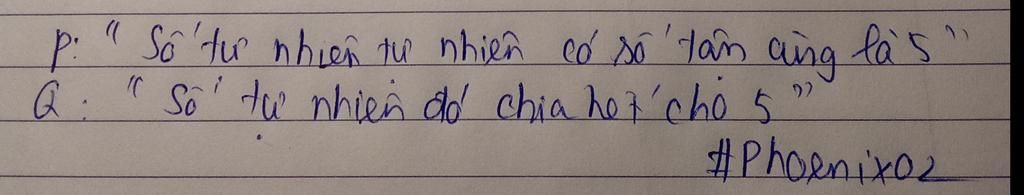 P: " Số tự nhiên tự nhiên có số tận cùng là 5 "
Q : " Số tự nhiên đó chia hết cho 5 "
#Phoenix02